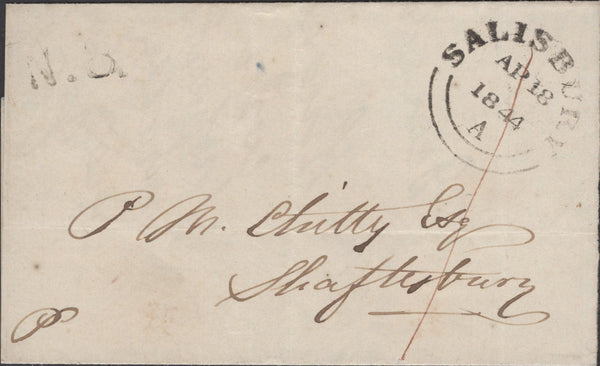 N.S.
SALISBURY
AP 18
1844
A
P M. Chitty Esq
Shaftesbury
P